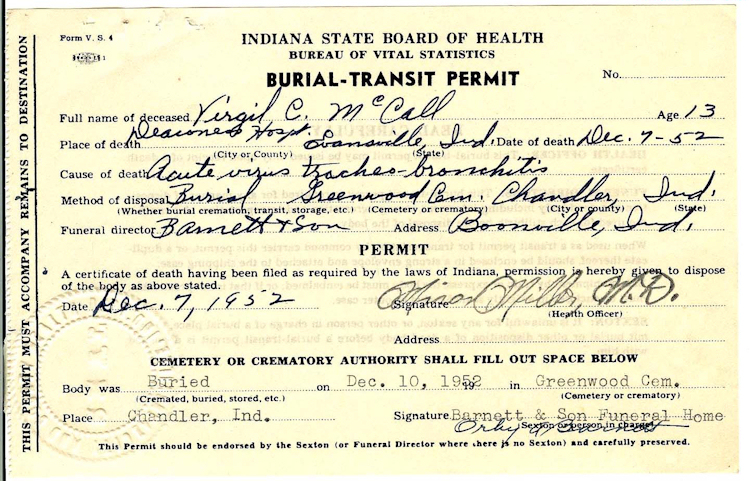 Form V. S. 4
INDIANA STATE BOARD OF HEALTH
BUREAU OF VITAL STATISTICS
BURIAL-TRANSIT PERMIT
No.
Full name of deceased Virgil C. McCall Age 13
Place of death Deaconess Hospt. Evansville, Ind. Date of death Dec. 7-52
(City or County) (State)
Cause of death Acute virus tracheo-bronchitis
Method of disposal Burial Greenwood Cem. Chandler, Ind.
(Whether burial cremation, transit, storage, etc.) (Cemetery or crematory) (City or county) (State)
Funeral director Barnett & Son Address Boonville, Ind.
PERMIT
A certificate of death having been filed as required by the laws of Indiana, permission is hereby given to dispose
of the body as above stated.
Date Dec. 7, 1952 Signature Miller M.D.
(Health Officer)
Address
CEMETERY OR CREMATORY AUTHORITY SHALL FILL OUT SPACE BELOW
Body was Buried on Dec. 10, 1952 192 in Greenwood Cem.
(Cremated, buried, stored, etc.) (Cemetery or crematory)
Place Chandler, Ind. Signature Barnett & Son Funeral Home
(Sexton or person in charge)
This Permit should be endorsed by the Sexton (or Funeral Director where there is no Sexton) and carefully preserved.
THIS PERMIT MUST ACCOMPANY REMAINS TO DESTINATION